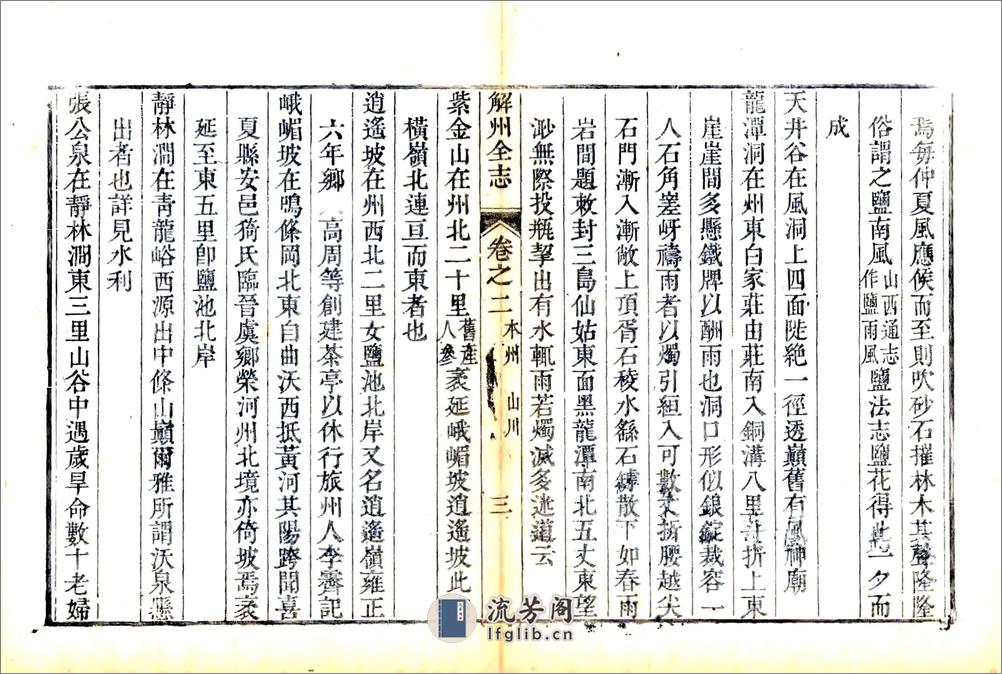 焉每仲夏風應候而至則吹砂石摧林木其聲隆隆
俗謂之鹽南風山西通志作鹽雨風鹽法志鹽花得此一夕而
成
天井谷在風洞上四面陡絶一徑透巔舊有風神廟
龍潭洞在州東白家莊由莊南入銅溝八里許折上東
崖崖間多懸鐵牌以酬雨也洞口形似銀錠裁容一
人石角岈禱雨者以燭引縆入可數丈折腰越尖
石門漸入漸敞上頂胥石稜水繇石罅散下如春雨
岩間題敕封三島仙姑東面黑龍潭南北五丈東望
渺無際投瓶挈出有水輒雨若燭滅多迷道云
解州全志 卷之二 本州 山川 三
紫金山在州北二十里舊産人參袤延峨嵋坡逍遙坡此
橫嶺北連亘而東者也
逍遙坡在州西北二里女鹽池北岸又名逍遙嶺雍正
六年鄉 高周等創建茶亭以休行旅州人李霽記
峨嵋坡在鳴條岡北東自曲沃西抵黃河其陽跨聞喜
夏縣安邑猗氏臨晉虞鄉榮河州北境亦倚坡焉袤
延至東五里卽鹽池北岸
靜林澗在青龍峪西源出中條山巔爾雅所謂沃泉懸
出者也詳見水利
張公泉在靜林澗東三里山谷中遇歲旱命數十老婦
流芳阁
lfglib.cn